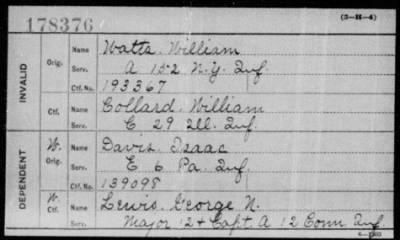 178376
(3-H-4)
INVALID
Orig.
Name Watta. William
Serv. A 152 N.Y. Inf.
Ctf. No. 193367
Ctf.
Name Collard. William
Serv. C 29 Ill. Inf.
DEPENDENT
W. Orig.
Name Davis. Isaac
Serv. E 6 Pa. Inf
Ctf. No. 139098
W. Ctf.
Name Lewis. George N.
Serv. Major 12 & Capt. A 12 Conn. Inf.